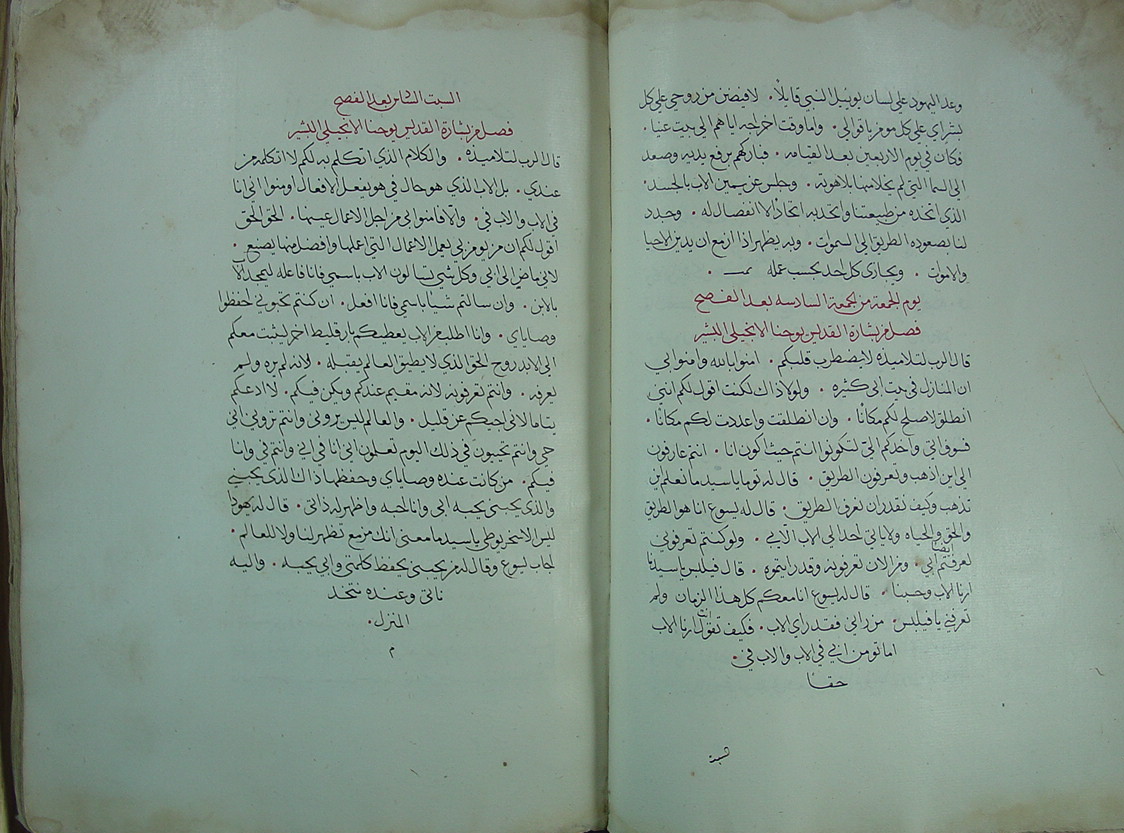 وعد اليهود علي لسان يوييل النبي قايلاً. لافيضن من روحي علي كل
بشراي علي كل مومن باقوالي. واما وقت اخراجه اياهم الي بيت عنيا.
فكان في يوم الاربعين بعد القيامه. فباركهم برفع يديه وصعد
الي السما التي لم يخلا منها بلاهوته. وجلس عن يمين الاب بالجسد.
الذي اتخذه من طبيعتنا واتحد به اتحادًا لا انفصال له. وحدد
لنا بصعوده الطريق الي السموات. وبه يظهر اذا ازمع ان يدين الاحيا
والاموات. ويجازي كل احد بحسب عمله
يوم الجمعة من الجمعة السادسه بعد الفصح
فصل من بشارة القديس يوحنا الانجيلي البشير
قال الرب لتلاميذه لا يضطرب قلبكم. امنوا بالله وامنوا بي
ان المنازل في بيت ابي كثيره. ولولا ذاك لكنت اقول لكم انني
انطلق لاصلح لكم مكانًا. وان انطلقت واعددت لكم مكانًا.
فسوف اتي واخذكم اليّ لتكونوا انتم حيث اكون انا. انتم عارفون
الي اين اذهب وتعرفون الطريق. قال له توما يا سيد ما نعلم اين
تذهب وكيف نقدر ان نعرف الطريق. قال له يسوع انا هو الطريق
والحق والحياه ولا ياتي احد الي الاب الا بي. ولو كنتم تعرفوني
لعرفتم ابي ايضا. ومن الان تعرفونه وقد رايتموه. قال فيلبس يا سيد
ارنا الاب وحسبنا. قال له يسوع انا معكم كل هذا الزمان ولم
تعرفني يا فيلبس. من راني فقد راي الاب. فكيف تقول انت ارنا الاب
اما تومن اني في الاب والاب فيّ.
حقا
السبت السادس بعد الفصح
فصل من بشارة القديس يوحنا الانجيلي البشير
قال الرب لتلاميذه. والكلام الذي اتكلم به لكم لا اتكلمه من
عندي. بل الاب الذي هو حال في هو يفعل الافعال اومنوا اني انا
في الاب والاب في. والا فامنوا بي من اجل الاعمال عينها. الحق الحق
اقول لكم ان من يومن بي يعمل الاعمال التي اعملها وافضل منها يصنع.
لاني ماض الي ابي وكل شي تسالون الاب باسمي فانا فاعله ليمجد الاب
بالابن. وان سالتم شياً باسمي فانا افعل. ان كنتم تحبوني احفظوا
وصاياي. وانا اطلب من الاب يعطيكم بارقليط اخر ليثبت معكم
الي الابد روح الحق الذي لا يطيق العالم يقبله. لانه لم يره ولم
يعرفه. وانتم تعرفونه لانه مقيم عندكم ويكن فيكم. لا ادعكم
يتاما لاني اجيكم عن قليل. والعالم ليس يروني وانتم تروني اني
حي وانتم تحيون في ذلك اليوم تعلمون اني انا في ابي وانتم في وانا
فيكم. من كانت عنده وصاياي وحفظها ذاك الذي يحبني
والذي يحبني يحبه ابي وانا احبه واظهر له ذاتي. قال له يهودا
ليس الاسخريوطي يا سيد ما معني انك مزمع تظهر لنا ولا للعالم.
اجاب يسوع وقال له من يحبني يحفظ كلمتي وابي يحبه. واليه
ناتي وعنده نتخذ
المنزل.
م